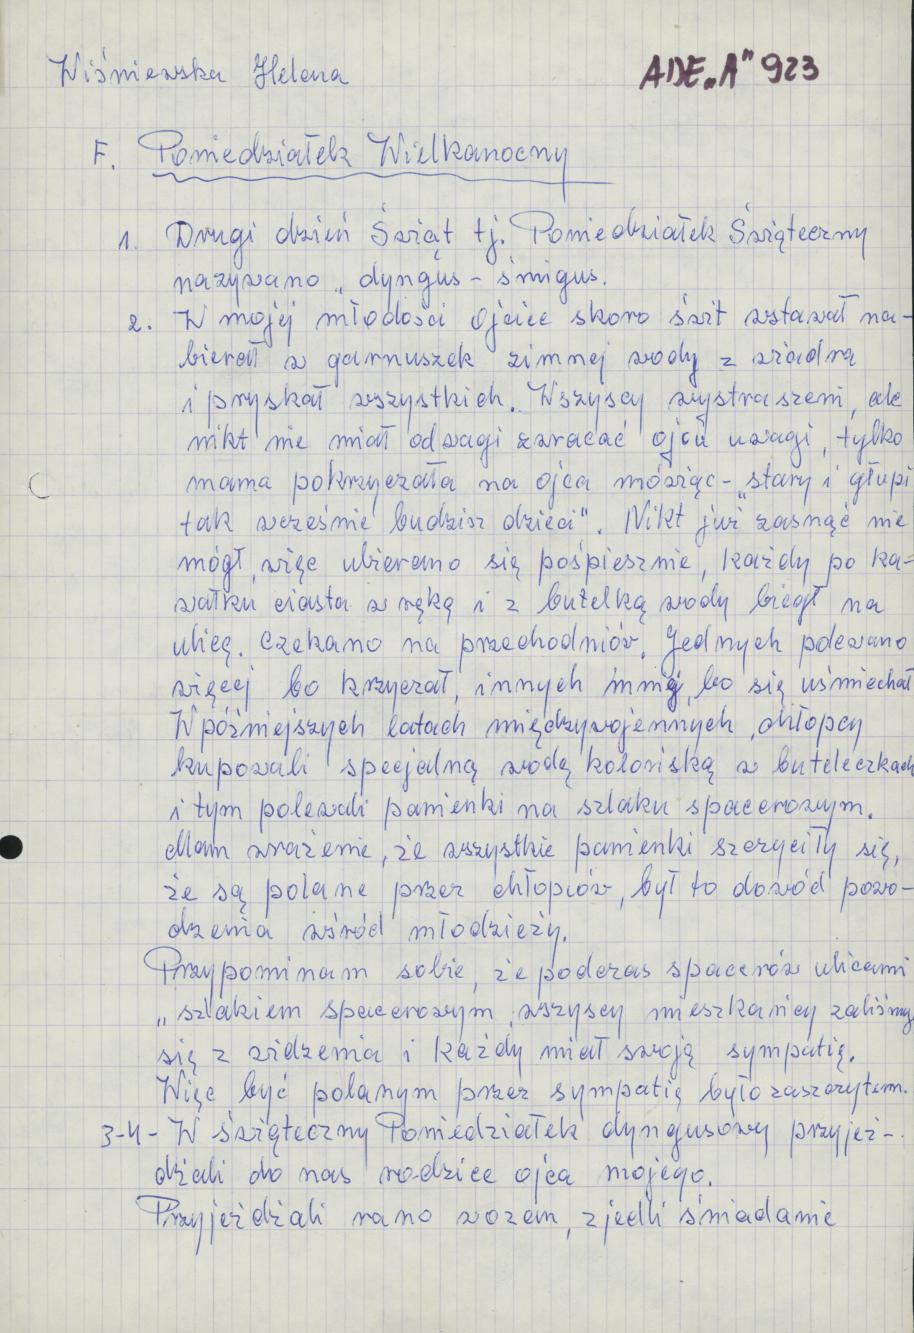 Wiśniewska Helena
ADE „A" 923
F. Poniedziałek Wielkanocny
1. Drugi dzień Świąt tj. Poniedziałek Świąteczny
nazywano „dyngus - śmigus.
2. W mojej młodości ojciec skoro świt wstawał na-
bierał w garnuszek zimnej wody z wiadra
i pryskał wszystkich. Wszyscy wystraszeni, ale
nikt nie miał odwagi zwracać ojcu uwagi, tylko
mama pokrzyczała na ojca mówiąc - „stary i głupi
tak wcześnie budzisz dzieci". Nikt już zasnąć nie
mógł, więc ubierano się pośpiesznie, każdy po ka-
wałku ciasta w ręką i z butelką wody biegł na
ulicę. Czekano na przechodniów. Jednych polewano
więcej bo krzyczał, innych mniej, bo się uśmiechał
W późniejszych latach międzywojennych, chłopcy
kupowali specjalną wodę kolońską w buteleczkach
i tym polewali panienki na szlaku spacerowym.
Mam wrażenie, że wszystkie panienki szczyciły się,
że są polane przez chłopców, był to dowód powo-
dzenia wśród młodzieży.
Przypominam sobie, że podczas spacerów ulicami
„szlakiem spacerowym, wszyscy mieszkańcy znaliśmy
się z widzenia i każdy miał swoją sympatię.
Więc być polanym przez sympatię było zaszczytem.
3-4 - W świąteczny Poniedziałek dyngusowy przyjeż-
dżali do nas rodzice ojca mojego.
Przyjeżdżali rano wozem, zjedli śniadanie